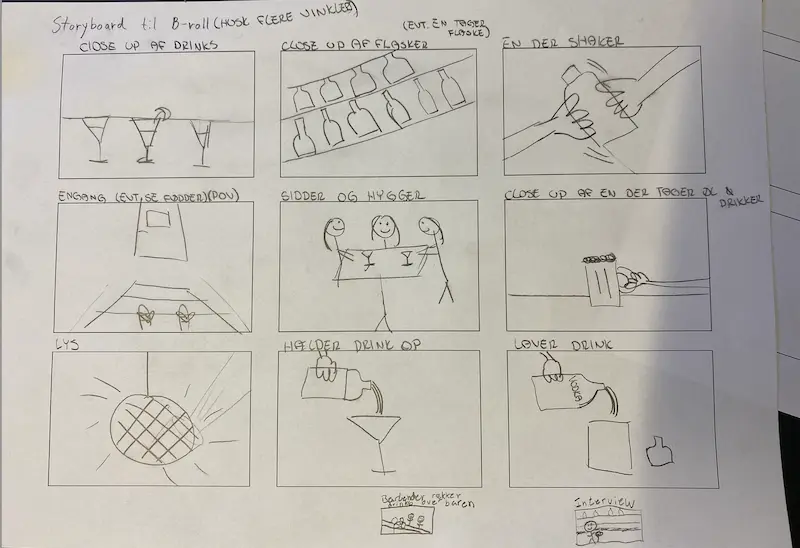 Storyboard til B-roll (HUSK FLERE VINKLER)
(EVT. EN TAGER FLASKE)
CLOSE UP AF DRINKS
CLOSE UP AF FLASKER
EN DER SHAKER
ENGANG (EVT, SE FØDDER) (POV)
SIDDER OG HYGGER
CLOSE UP AF EN DER TAGER ØL & DRIKKER
LYS
HÆLDER DRINK OP
LAVER DRINK
VODKA
Bartender rækker
drinks over baren
Interview